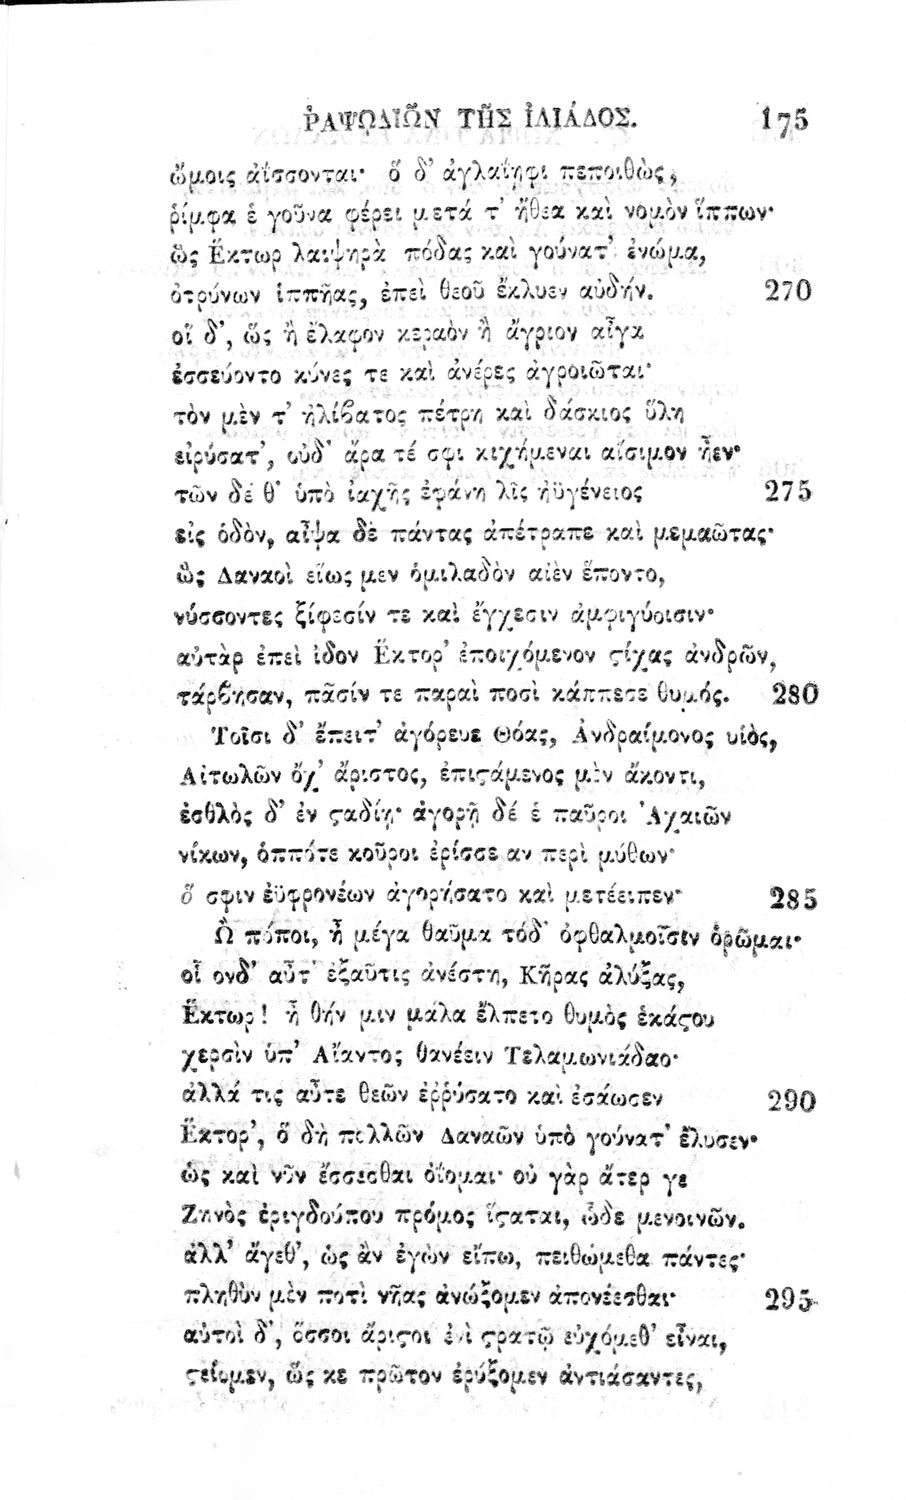 ῬΑΨΩΔΙΩ͂Ν ΤΗ͂Σ ἸΛΙΆΔΟΣ. 175
ὤμοις ἀΐσσονται· ὅ δ' ἀγλαΐηφι πεποιθὼς,
ῥίμφα ἑ γοῦνα φέρει μετά τ' ἤθεα καὶ νομὸν ἵππων·
ὣς Ἕκτωρ λαιψηρὰ πόδας καὶ γούνατ' ἐνώμα,
ὀτρύνων ἱππῆας, ἐπεὶ θεοῦ ἔκλυεν αὐδήν. 270
οἵ δ', ὥς ἢ ἔλαφον κεραὸν ἢ ἄγριον αἶγα
ἐσσεύοντο κύνες τε καὶ ἀνέρες ἀγροιῶται·
τὸν μὲν τ' ἠλίβατος πέτρη καὶ δάσκιος ὕλη
εἰρύσατ', οὐδ' ἄρα τέ σφι κιχήμεναι αἴσιμον ἦεν·
τῶν δέ θ' ὑπὸ ἰαχῆς ἐφάνη λῖς ἠϋγένειος 275
εἰς ὁδὸν, αἶψα δὲ πάντας ἀπέτραπε καὶ μεμαῶτας·
ὣς Δαναοὶ εἵως μεν ὁμιλαδὸν αἰὲν ἕποντο,
νύσσοντες ξίφεσίν τε καὶ ἔγχεσιν ἀμφιγύοισιν·
αὐτὰρ ἐπεὶ ἰδον Ἕκτορ' ἐποιχόμενον ϛίχας ἀνδρῶν,
τάρβησαν, πᾶσίν τε παραὶ ποσὶ κάππεσε θυμός. 280
Τοῖσι δ' ἔπειτ' ἀγόρευε Θόας, Ἀνδραίμονος υἱὸς,
Αἰτωλῶν ὄχ' ἄριστος, ἐπιϛάμενος μὲν ἄκοντι,
ἐσθλὸς δ' ἐν ϛαδίῃ· ἀγορῇ δέ ἑ παῦροι Ἀχαιῶν
νίκων, ὁππότε κοῦροι ἐρίσσε αν περὶ μύθων·
ὅ σφιν ἐϋφρονέων ἀγορήσατο καὶ μετέειπεν·
285
Ὢ πόποι, ἦ μέγα θαῦμα τόδ' ὀφθαλμοῖσιν ὁρῶμαι·
οἷ ονδ' αὖτ' ἐξαῦτις ἀνέστη, Κῆρας ἀλύξας,
Ἕκτωρ! ἦ θήν μιν μάλα ἔλπετο θυμὸς ἑκάϛου
χερσὶν ὑπ' Αἴαντος θανέειν Τελαμωνιάδαο·
ἀλλά τις αὖτε θεῶν ἐῤῥύσατο καὶ ἐσάωσεν 290
Ἕκτορ', ὅ δὴ πολλῶν Δαναῶν ὑπὸ γούνατ' ἔλυσεν·
ὡς καὶ νῦν ἔσσεσθαι ὀΐομαι· οὐ γὰρ ἄτερ γε
Ζηνὸς ἐριγδούπου πρόμος ἵϛαται, ὧδε μενοινῶν.
ἀλλ' ἄγεθ', ὡς ἂν ἐγὼν εἴπω, πειθώμεθα πάντες·
πληθὺν μὲν ποτὶ νῆας ἀνώξομεν ἀπονέεσθαι· 295
αὐτοὶ δ', ὅσσοι ἄριϛοι ἐνὶ ϛρατῷ εὐχόμεθ' εἶναι,
ϛείομεν, ὥς κε πρῶτον ἐρύξομεν ἀντιάσαντες,